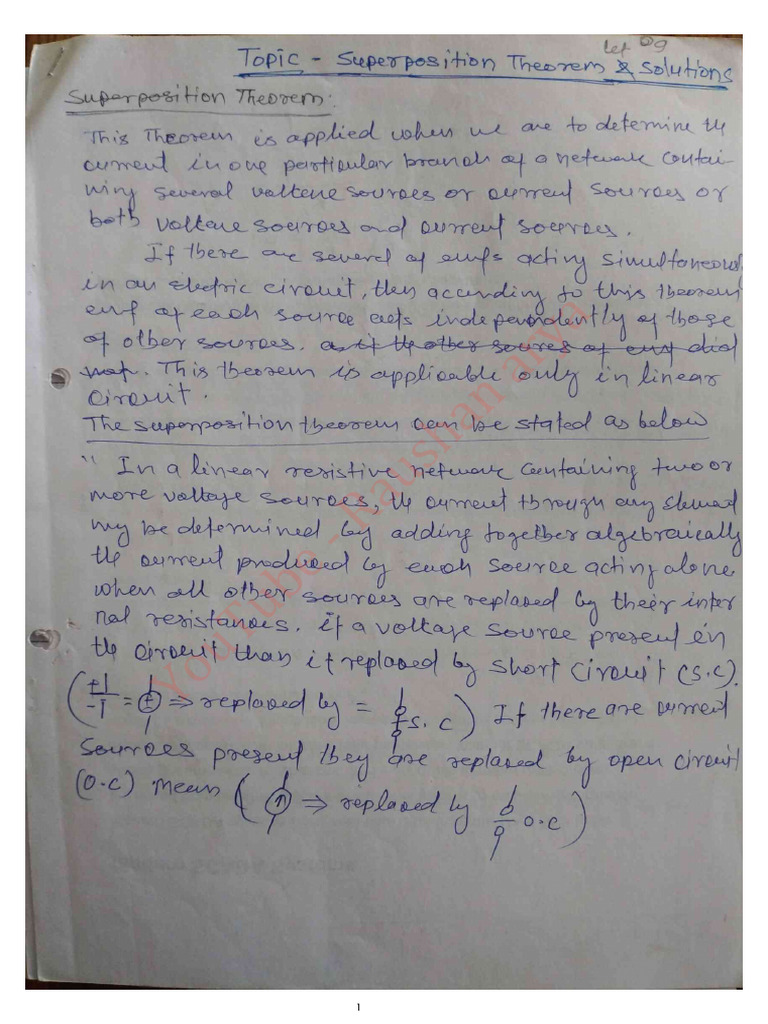 Lef 09
Topic - Superposition Theorem & Solutions
Superposition Theorem:
This Theorem is applied when we are to determine the
current in one particular branch of a network contai-
ning several voltage sources or current sources or
both voltage sources and current sources.
If there are several of emfs acting simultaneous
in an electric circuit, then according to this theorem
emf of each source acts independently of those
of other sources. as if the other soures of emf did
not. This theorem is applicable only in linear
Circuit.
The superposition theorem can be stated as below
" In a linear resistive network containing two or
more voltage sources, the current through any element
may be determined by adding together algebraically
the current produced by each source acting alone
when all other sources are replaced by their inter
nal resistances. if a voltage source present in
the circuit than it replaced by short circuit (S.C).
(+ - = ± ⇒ replaced by = S.C) If there are current
Sources present they are replaced by open circuit
(O.C) mean (↑ ⇒ replaced by O.C)
YouTube - Raushan arya
1